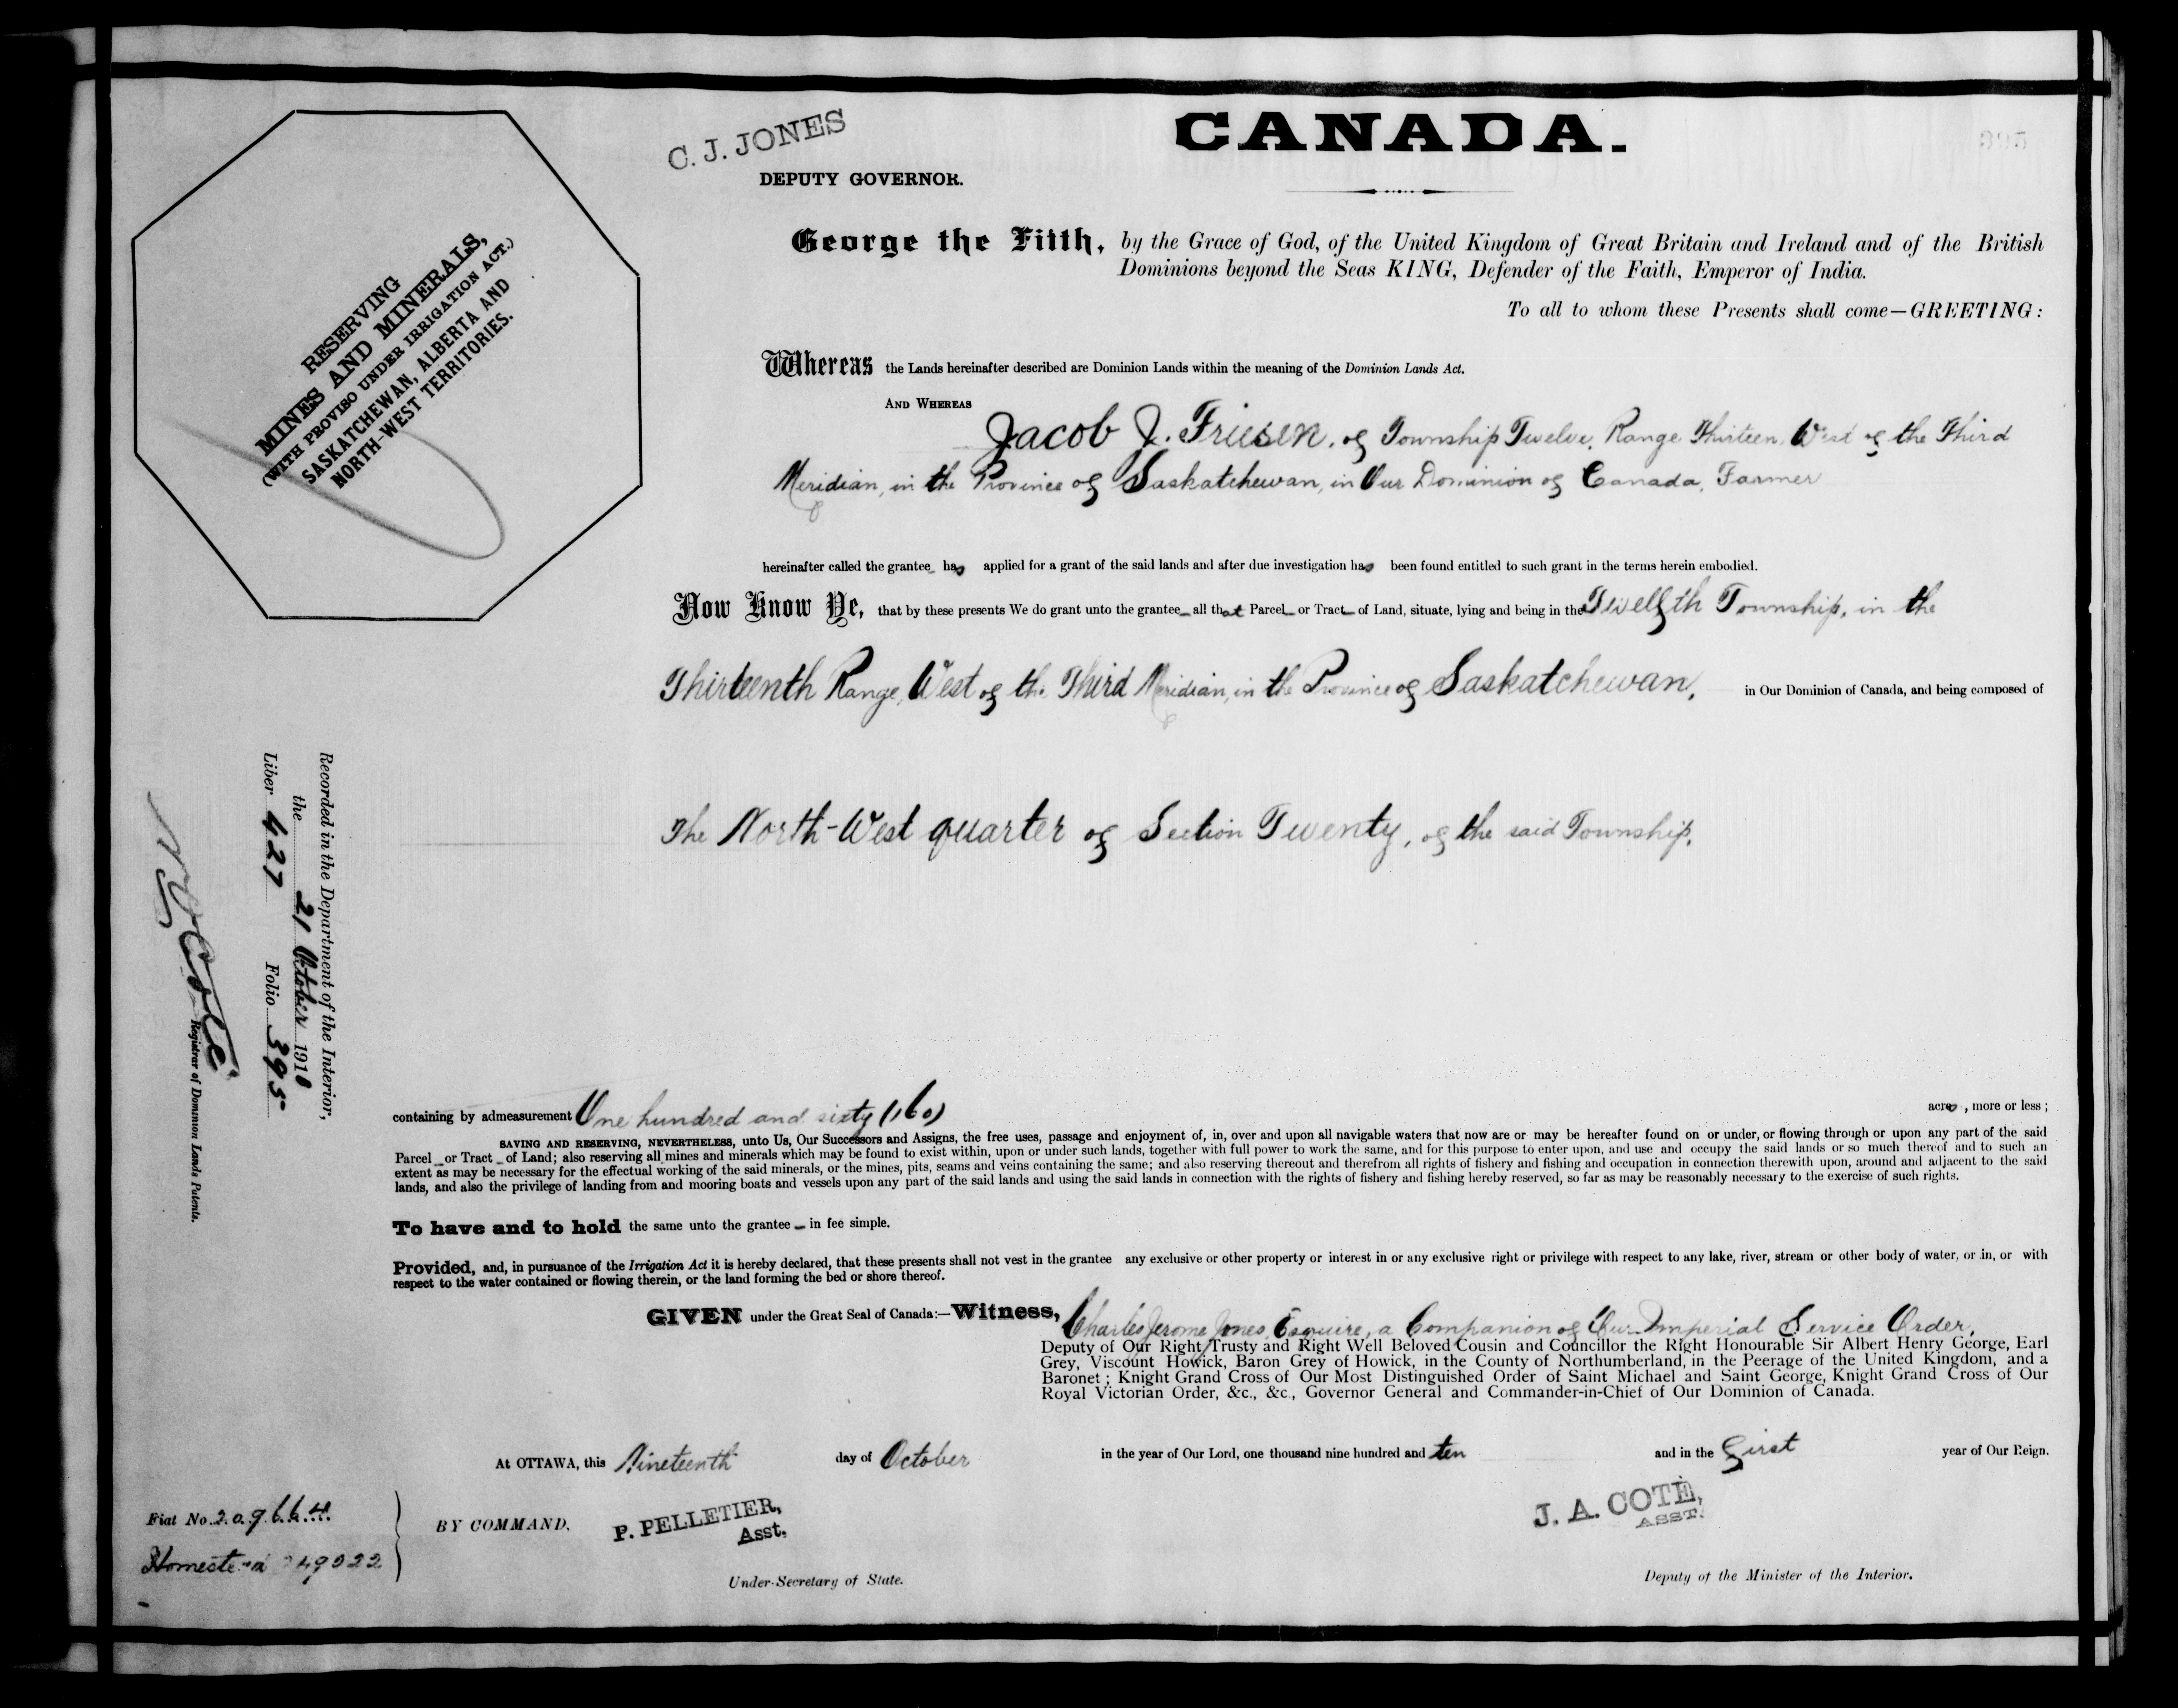 C. J. JONES
DEPUTY GOVERNOR.
CANADA.
395
RESERVING
MINES AND MINERALS,
(WITH PROVISO UNDER IRRIGATION ACT.)
SASKATCHEWAN, ALBERTA AND
NORTH-WEST TERRITORIES.
George the Fifth, by the Grace of God, of the United Kingdom of Great Britain and Ireland and of the British
Dominions beyond the Seas KING, Defender of the Faith, Emperor of India.
To all to whom these Presents shall come—GREETING:
Whereas the Lands hereinafter described are Dominion Lands within the meaning of the Dominion Lands Act.
AND WHEREAS
Jacob J. Friesen, of Township Twelve, Range Thirteen, West of the Third
Meridian, in the Province of Saskatchewan, in Our Dominion of Canada, Farmer
hereinafter called the grantee has applied for a grant of the said lands and after due investigation has been found entitled to such grant in the terms herein embodied.
Now Know Ye, that by these presents We do grant unto the grantee all that Parcel or Tract of Land, situate, lying and being in the Twelfth Township, in the
Thirteenth Range, West of the Third Meridian, in the Province of Saskatchewan, in Our Dominion of Canada, and being composed of
The North-West quarter of Section Twenty, of the said Township,
Recorded in the Department of the Interior,
the 21 October 1910
Liber 427 Folio 395
Registrar of Dominion Lands Patents.
containing by admeasurement One hundred and sixty (160) acres, more or less;
SAVING AND RESERVING, NEVERTHELESS, unto Us, Our Successors and Assigns, the free uses, passage and enjoyment of, in, over and upon all navigable waters that now are or may be hereafter found on or under, or flowing through or upon any part of the said
Parcel or Tract of Land; also reserving all mines and minerals which may be found to exist within, upon or under such lands, together with full power to work the same, and for this purpose to enter upon, and use and occupy the said lands or so much thereof and to such an
extent as may be necessary for the effectual working of the said minerals, or the mines, pits, seams and veins containing the same; and also reserving thereout and therefrom all rights of fishery and fishing and occupation in connection therewith upon, around and adjacent to the said
lands, and also the privilege of landing from and mooring boats and vessels upon any part of the said lands and using the said lands in connection with the rights of fishery and fishing hereby reserved, so far as may be reasonably necessary to the exercise of such rights.
To have and to hold the same unto the grantee in fee simple.
Provided, and, in pursuance of the Irrigation Act it is hereby declared, that these presents shall not vest in the grantee any exclusive or other property or interest in or any exclusive right or privilege with respect to any lake, river, stream or other body of water, or in, or with
respect to the water contained or flowing therein, or the land forming the bed or shore thereof.
GIVEN under the Great Seal of Canada:—Witness, Charles Jerome Jones, Esquire, a Companion of Our Imperial Service Order,
Deputy of Our Right Trusty and Right Well Beloved Cousin and Councillor the Right Honourable Sir Albert Henry George, Earl
Grey, Viscount Howick, Baron Grey of Howick, in the County of Northumberland, in the Peerage of the United Kingdom, and a
Baronet; Knight Grand Cross of Our Most Distinguished Order of Saint Michael and Saint George, Knight Grand Cross of Our
Royal Victorian Order, &c., &c., Governor General and Commander-in-Chief of Our Dominion of Canada.
At OTTAWA, this Nineteenth day of October in the year of Our Lord, one thousand nine hundred and ten and in the First year of Our Reign.
Fiat No. 209664
Homestead 249022
BY COMMAND,
P. PELLETIER,
Asst.
Under-Secretary of State.
J. A. COTÉ,
ASST.
Deputy of the Minister of the Interior.